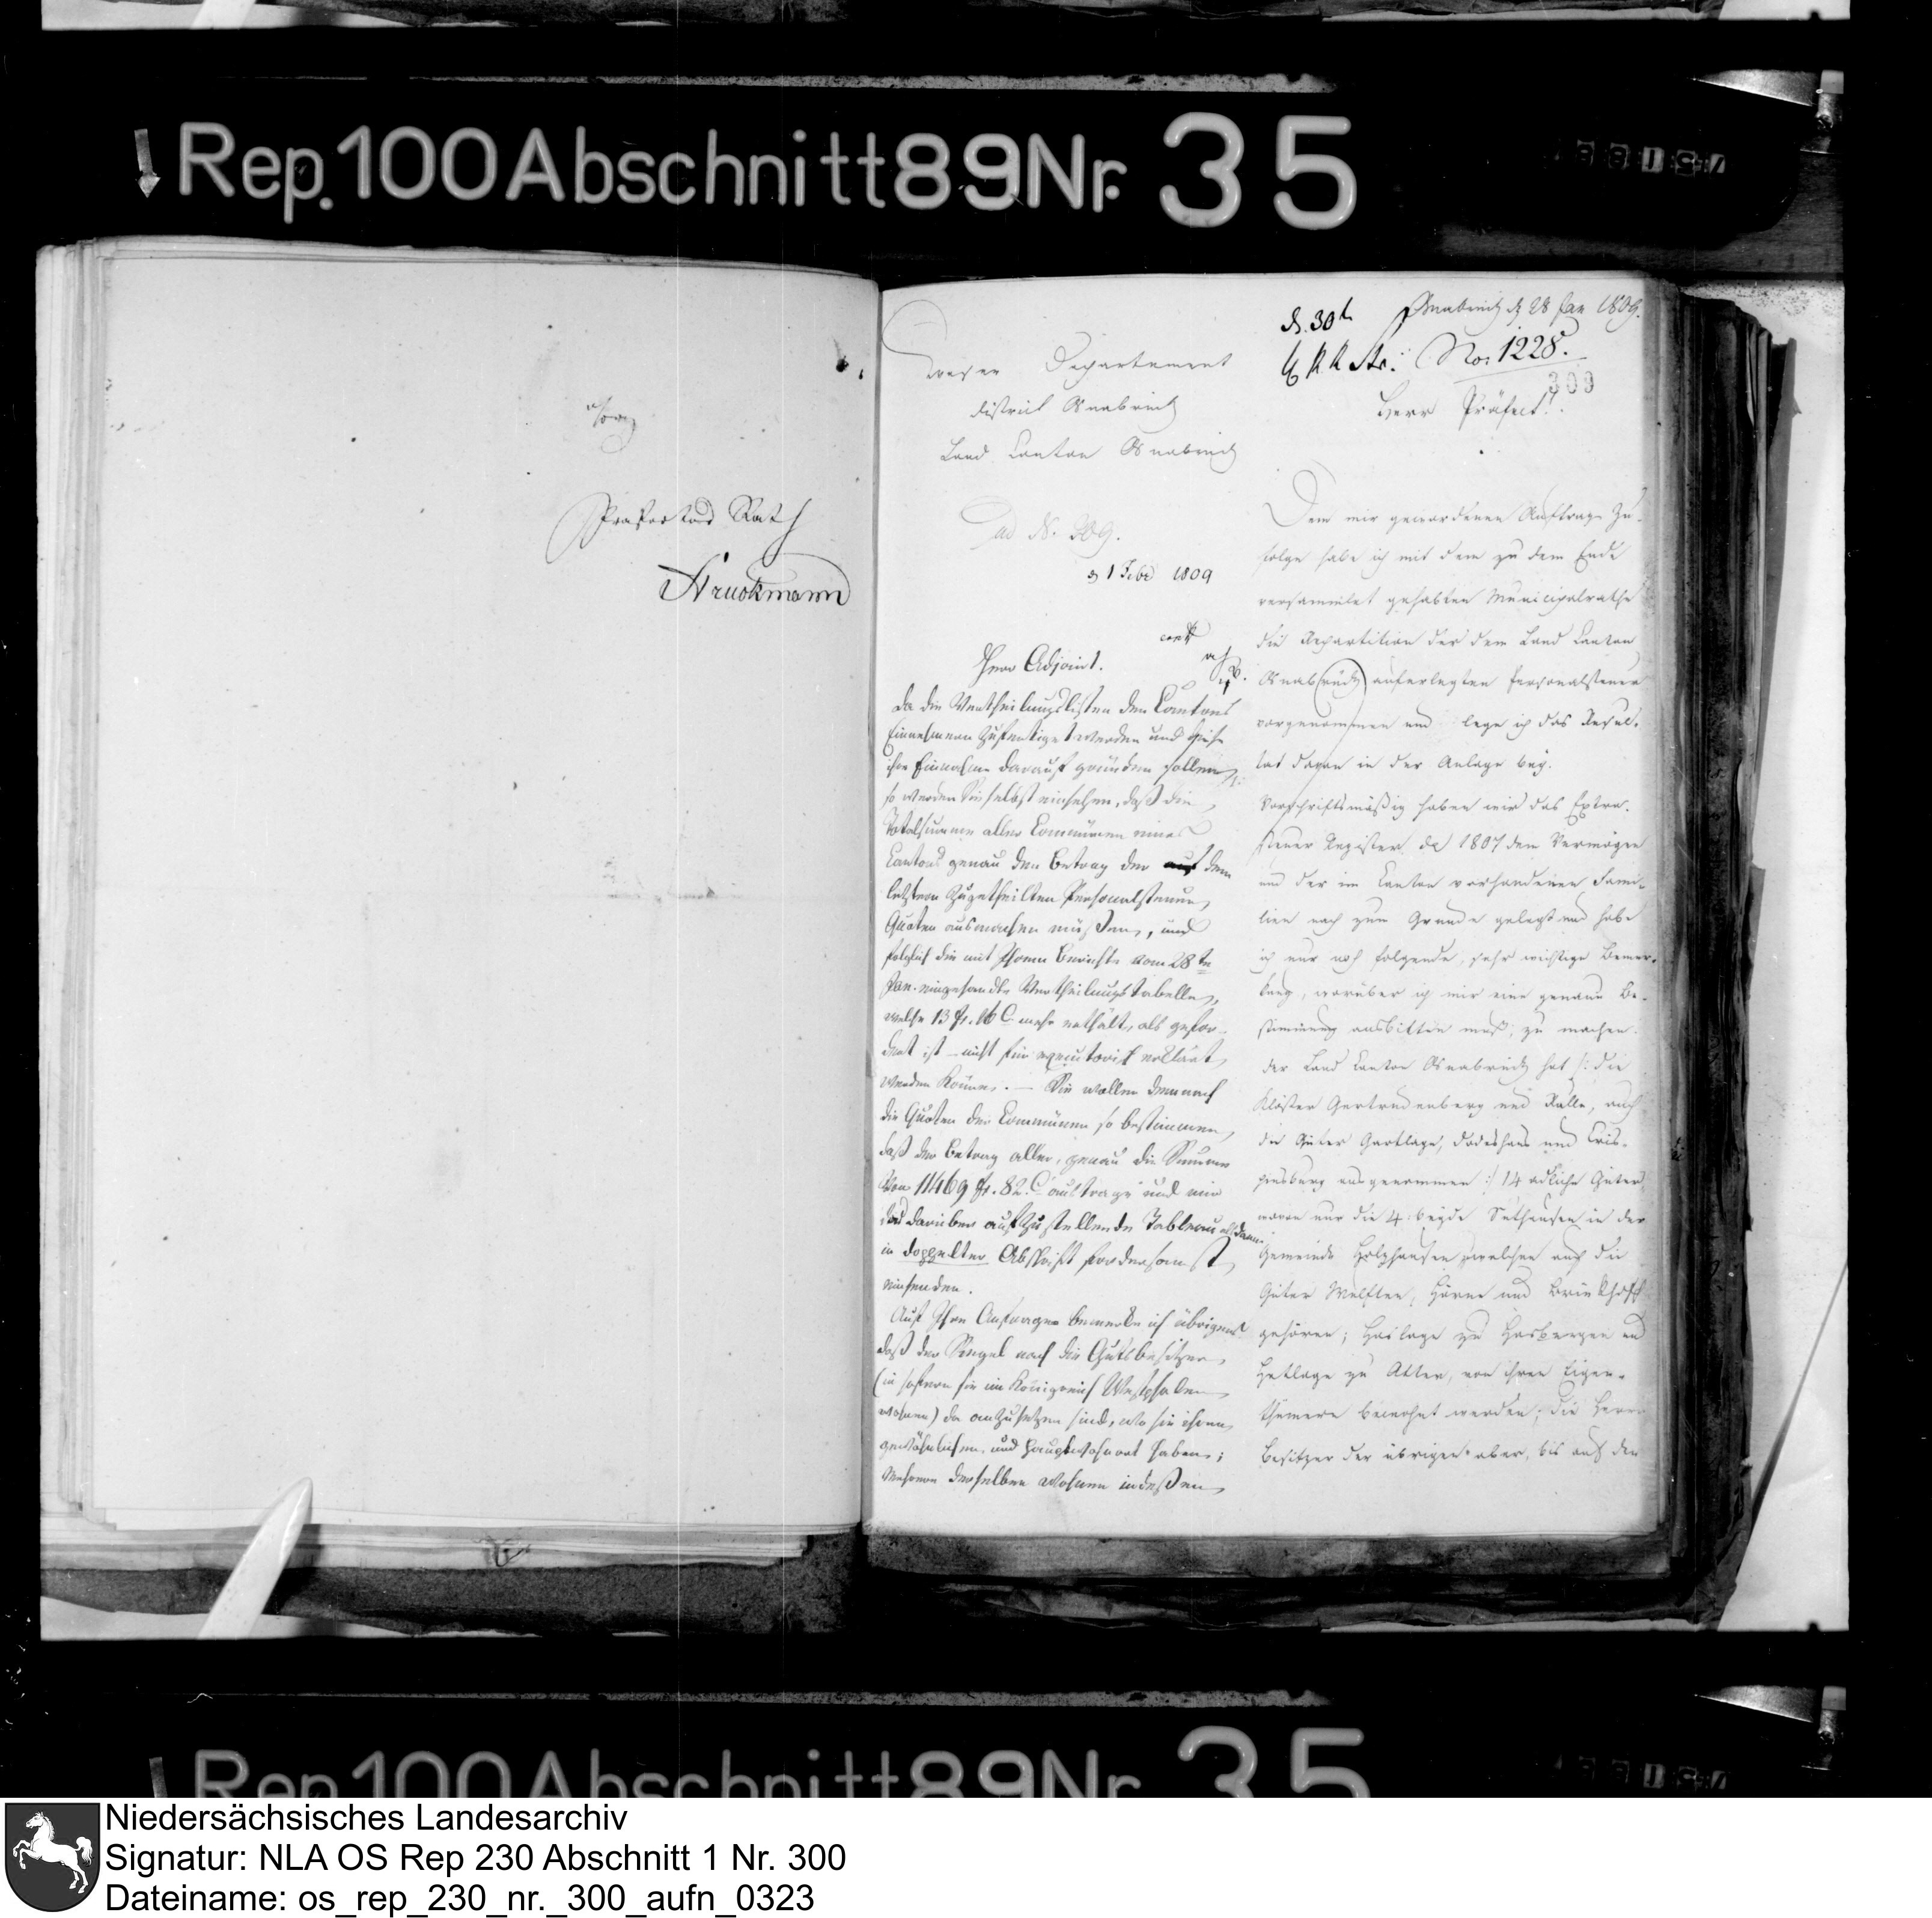 Rep. 100 Abschnitt 89 Nr. 35
Praefectur Rath
Struckmann
Weser Departement
District Osnabrück
Land Canton Osnabrück
ad N. 309.
1 Febr 1809
Herr Adjoint.
Da die Vertheilungslisten den Cantons
Einnehmern zugefertiget werden und diese
ihre Einnahme darauf gründen sollen,
so werden Sie selbst einsehen, daß die
Totalsumme aller Communen eines
Cantons genau den Betrag der dem
letztern zugetheilten Personalsteuer
Quoten ausmachen müssen, und
folglich die mit Ihrem Berichte vom 28te
Jan. eingesandte Vertheilungstabelle,
welche 13 fr. 16 C. mehr enthält, als gefor-
dert ist – nicht für executorisch erklärt
werden könne. – Sie wollen demnach
die Quoten der Communen so bestimmen,
daß der Betrag aller, genau die Summe
von 11469 fr. 82 C. austrage und mir
das darüber aufzustellende Tableau alsdann
in doppelter Abschrift fordersamst
einsenden.
Auf Ihre Anfragen bemerke ich übrigens
daß der Regel nach die Gutsbesitzer,
(in sofern sie im Königreich Westphalen
wohnen) da anzusetzen sind, wo sie ihren
gewöhnlichen und Hauptwohnort haben;
Mehrere derselben wohnen indeßen
d. 30t Osnabrück d 28 Jan 1809.
No. 1228.
309
Herr Präfect!
Dem mir gewordenen Auftrage zu-
folge habe ich mit dem zu dem Ende
versammlet gehabten Municipalrathe
die Repartition der dem Land Canton
Osnabrück auferlegten Personalsteuer
vorgenommen und lege ich das Resul-
tat davon in der Anlage bey.
Vorschriftsmäßig haben wir das Extra-
steuer Register de 1807 dem Vermögen
und der im Canton vorhandenen Fami-
lien nach zum Grunde gelegt und habe
ich nur noch folgende, sehr wichtige Bemer-
kung, worüber ich mir eine genaue Be-
stimmung ausbitten muß, zu machen.
der Land Canton Osnabrück hat /: die
Klöster Gertrudenberg und Rulle, auch
die Güter Gartlage, Dodeshaus und Cris-
pinsburg ausgenommen :/ 14 adliche Güter
wovon nur die 4 beyde Suthausen in der
Gemeinde Holzhausen, zu welchen auch die
Güter Wulften, Hörne und Brinkhoff
gehören; Haslage zu Hasbergen und
Hetlage zu Atter, von ihren Eigen-
thümern bewohnt werden; die Herrn
Besitzer der übrigen aber, bis auf den
Rep. 100 Abschnitt 89 Nr. 35
Niedersächsisches Landesarchiv
Signatur: NLA OS Rep 230 Abschnitt 1 Nr. 300
Dateiname: os_rep_230_nr._300_aufn_0323